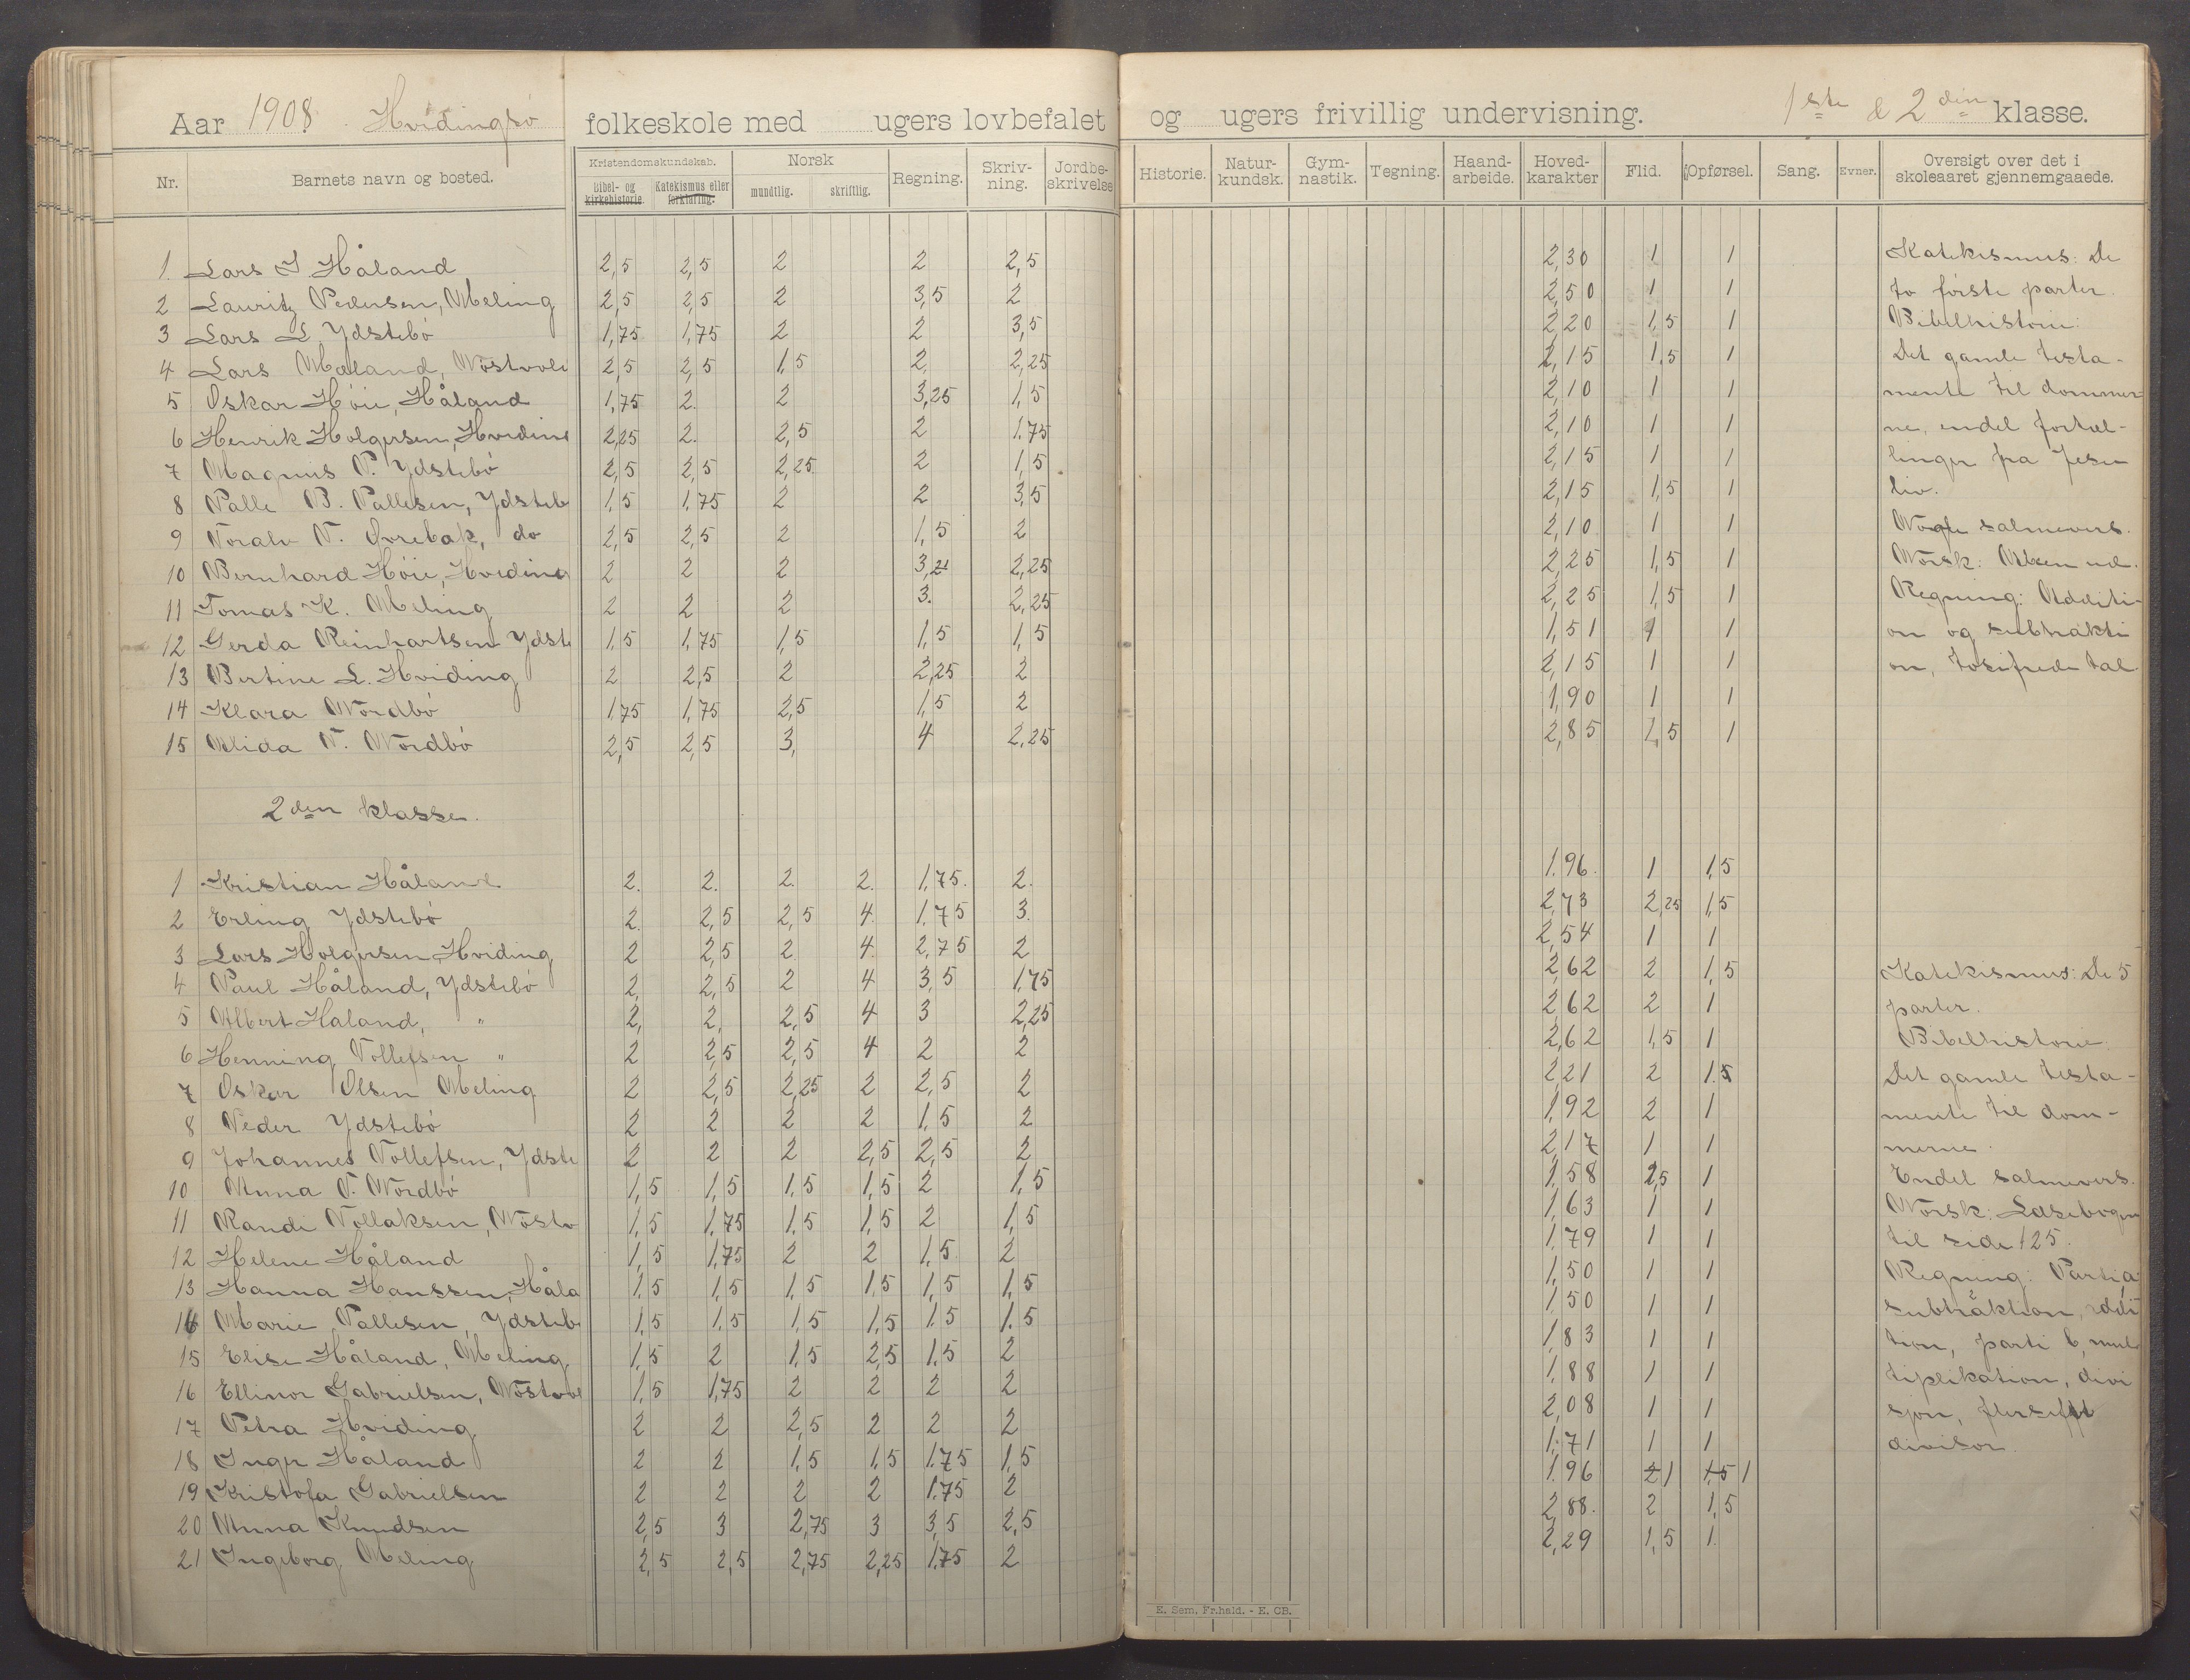 Aar 1908. Hvidingsö folkeskole med ugers lovbefalet og ugers frivillig undervisning. 1ste & 2den klasse.
Nr. Barnets navn og bosted. Kristendomskundskab. Bibel- og kirkehistorie. Katekismus eller forklaring. Norsk mundtlig. skriftlig. Regning. Skriv-ning. Jordbe-skrivelse Historie. Natur-kundsk. Gym-nastik. Tegning. Haand-arbeide. Hoved-karakter Flid. Opførsel. Sang. Evner. Oversigt over det i skoleaaret gjennemgaaede.
1. Lars I. Håland 2,5 2,5 2 2 2,5 2,30 1 1 Katekismus: De
2 Lauritz Pedersen, Meling 2,5 2,5 2 3,5 2 2,50 1 1 to förste parter.
3 Lars L. Ydstebö 1,75 1,75 2 2 3,5 2,20 1,5 1 Bibelhistorie:
4 Lars Mæland, Nöstvold 2,5 2,5 1,5 2 2,25 2,15 1,5 1 Det gamle testa-
5 Oskar Höie, Håland 1,75 2. 2 3,25 1,5 2,10 1 1 mente til dommer-
6 Henrik Holgersen, Hviding 2,25 2. 2,5 2 1.75 2,10 1 1 ne, endel fortæl-
7 Magnus P. Ydstebö 2,5 2,5 2,25 2 1,5 2,15 1 1 linger fra Jesu
8 Palle B. Pallesen, Ydsteb 1,5 1,75 2 2 3,5 2,15 1,5 1 liv.
9 Toralv T. Övrebak, do 2,5 2,5 2 1,5 2 2,10 1 1 Nogle salmevers.
10 Bernhard Höie, Hviding 2 2 2 2,25 2,25 1,5 1 Norsk: Abcen ud.
11 Tomas K. Meling 2 2 2 3. 2,25 2,25 1,5 1 Regning: Additi-
12 Gerda Reinhartsen Ydste 1,5 1,75 1,5 1,5 1,5 1,51 1 1 on og subtrakti
13 Bertine L. Hviding 2 2,5 2 2,25 2 2,15 1 1 on, tosifrede tal.
14 Klara Nordbö 1,75 1,75 2,5 1,5 2 1,90 1 1
15 Alida T. Nordbö 2,5 2,5 3, 4 2,25 2,85 1,5 1
2den klasse.
1 Kristian Håland 2. 2. 2. 2. 1,75. 2. 1.96. 1 1,5
2 Erling Ydstebö 2. 2,5 2,5 4. 1.75 3. 2,73 2,25 1,5
3 Lars Holgersen, Hviding 2 2,5 2 4. 2,75 2 2,54 1 1
4 Paul Håland, Ydstebö 2, 2,5 2 4 3,5 1,75 2,62 2 1,5 Katekismus: De 5
5 Albert Håland, " 2, 2, 2,5 4 3 2,25 2,62 2 1 parter.
6 Henning Tollefsen " 2 2,5 2,5 4 2 2 2,62 1,5 1 Bibelhistorie:
7 Oskar Olsen Meling 2 2,5 2,25 2 2,5 2 2,21 2 1.5 Det gamle testa-
8 Peder Ydstebö 2 2 2 2 1,5 2 1,92 2 1 mente til dom-
9 Johannes Tollefsen, Ydste 2 2 2 2,5 2,5 2 2,17 1 1 merne.
10 Anna T. Nordbö 1,5 1,5 1,5 1,5 2 1,5 1,58 2,5 1 Endel salmevers.
11 Randi Tollaksen, Nöstv 1,5 1,75 1,5 1,5 2 1,5 1,63 1 1 Norsk: Læsebogen
12 Helene Håland 1,5 1,75 2 2 1,5 2 1,79 1 1 til side 125.
13 Hanna Hanssen, Håla 1,5 1,5 1,5 1,5 1,5 1,5 1,50 1 1 Regning: Parti a
14 Marie Pallesen, Ydsteb 1,5 1,5 1,5 1,5 1,5 1.5 1,50 1 1 subtraktion, addi
15 Elise Håland, Meling. 1,5 2 1,5 2,5 1.5 2 1,83 1 1 tion, parti b, mul
16 Ellinor Gabrielsen, Nöstvol 1,5 1,75 2 2 2 2 1.88 1 1 tiplikation, divi
17 Petra Hviding 2 2 2,5 2 2 2 2,08 1 1 sjon,
18 Inger Håland 2 2 1,5 1,5 1.75 1,5 1,71 1 1 divisor.
19 Kristofa Gabrielsen 2 2 2 2 1.75 2 1.96 2 1 1.5 1
20 Anna Knudsen 2,5 3 2,75 3 3,5 2,5 2,88. 2 1,5
21 Ingeborg Meling 2,5 2,5 2,75 2,25 1.75 2 2,29 1,5 1.
E. Sem, Fr.hald. - E. CB.